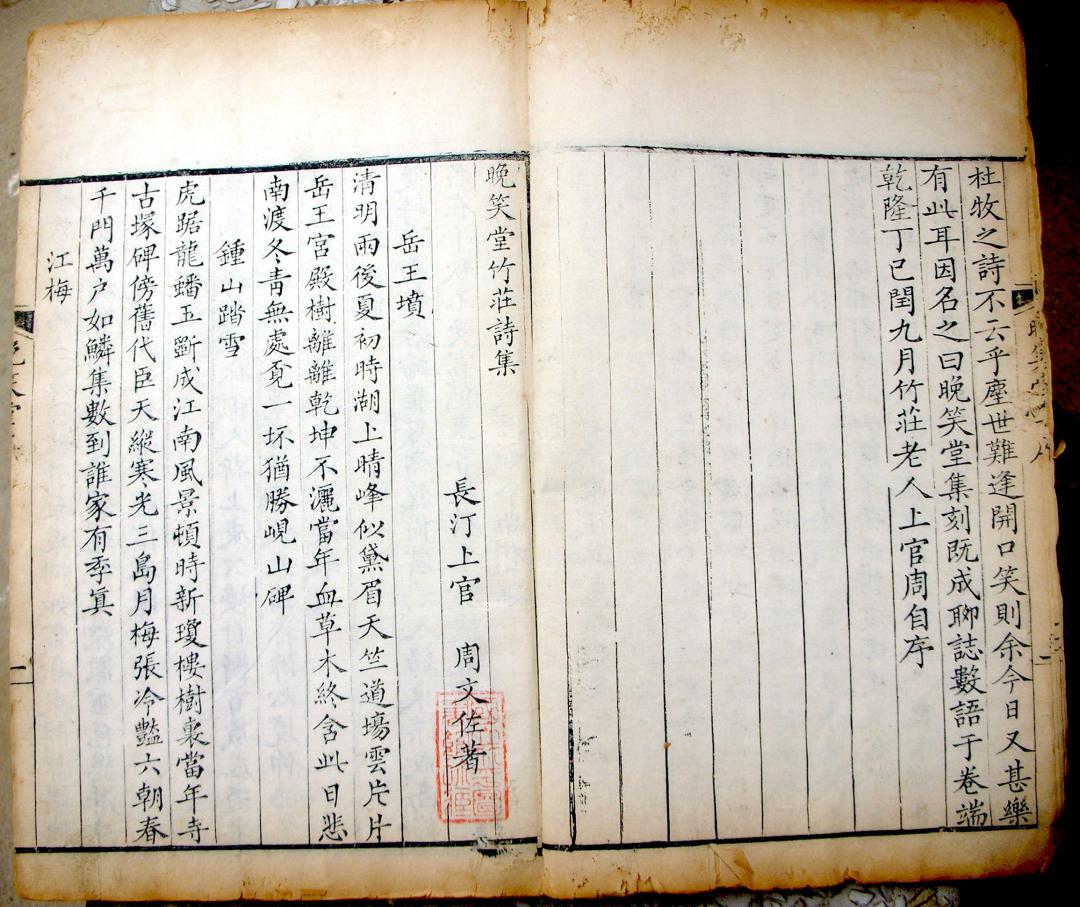 杜牧之詩不云乎塵世難逢開口笑則余今日又甚樂
有此耳因名之曰晚笑堂集刻既成聊誌數語于卷端
乾隆丁巳閏九月竹莊老人上官周自序
晚笑堂竹莊詩集
長汀上官 周文佐著
岳王墳
清明雨後夏初時湖上晴峰似黛眉天竺道場雲片片
岳王宮殿樹離離乾坤不灑當年血草木終含此日悲
南渡冬青無處覓一坏猶勝峴山碑
鍾山踏雪
虎踞龍蟠玉斵成江南風景頓時新瓊樓樹裏當年寺
古塚碑傍舊代臣天縱寒光三島月梅張冷豔六朝春
千門萬户如鱗集數到誰家有季真
江梅